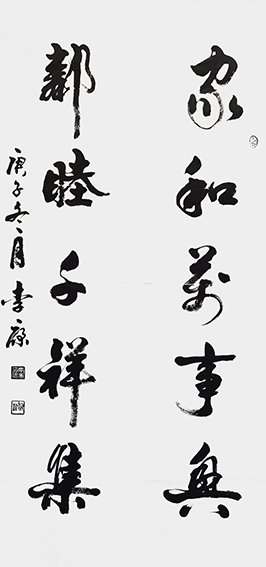 家和萬事興
鄰睦千祥集
庚子冬月李康